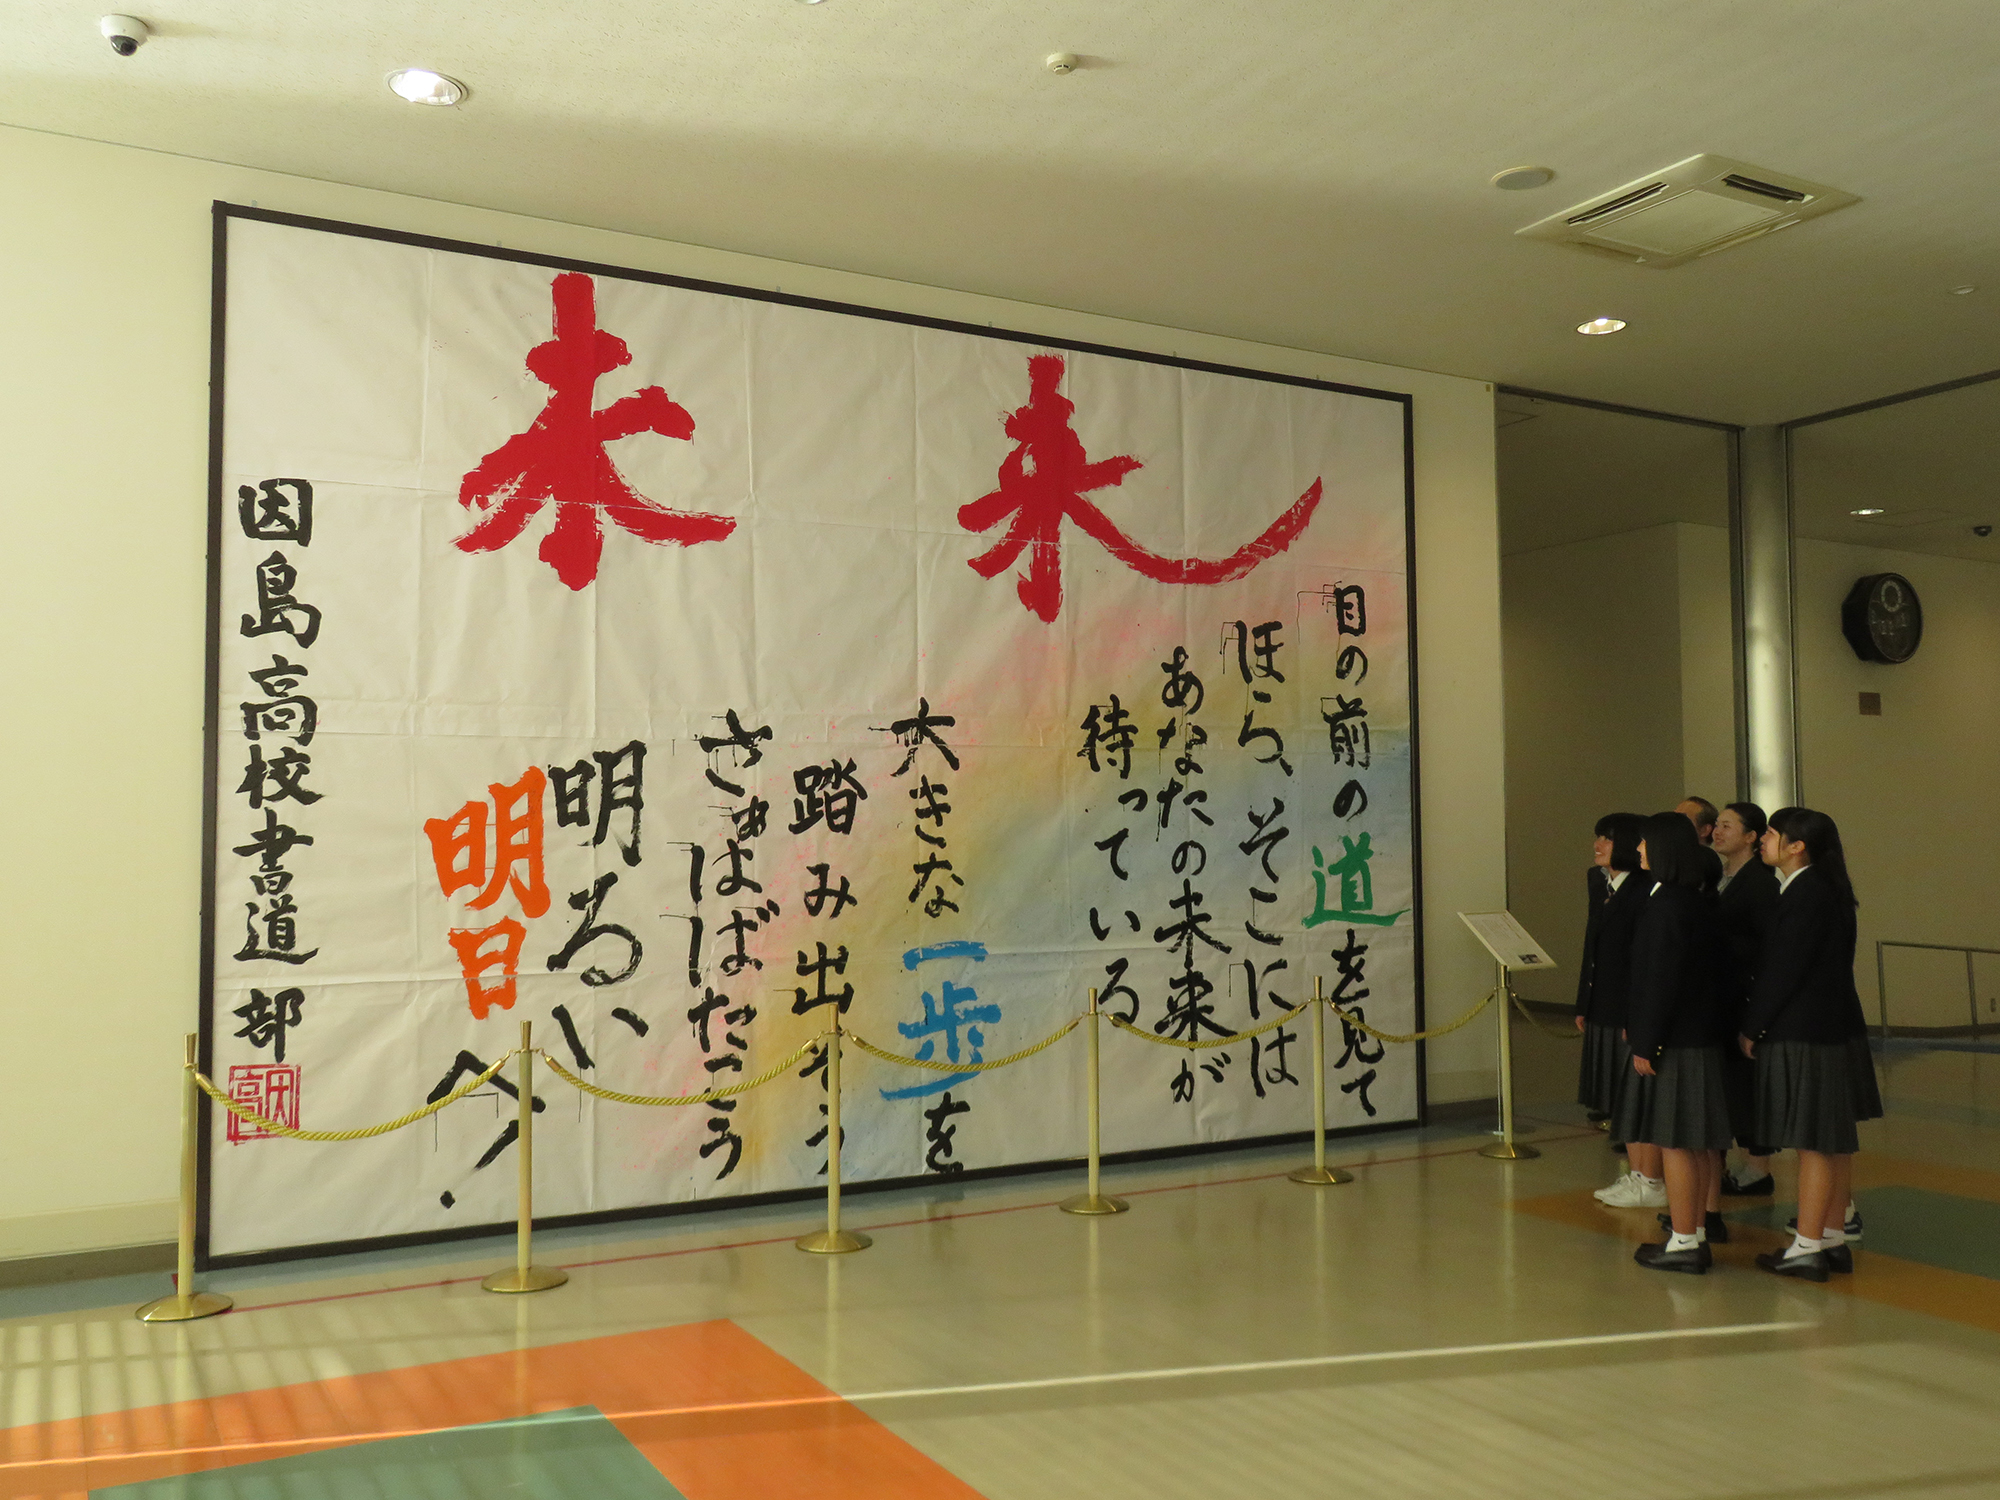 未来
目の前の道を見て
ほら、そこには
あなたの未来が
待っている
大きな一歩を
踏み出そう
さぁはばたこう
明るい
明日へ!
因島高校書道部
因高